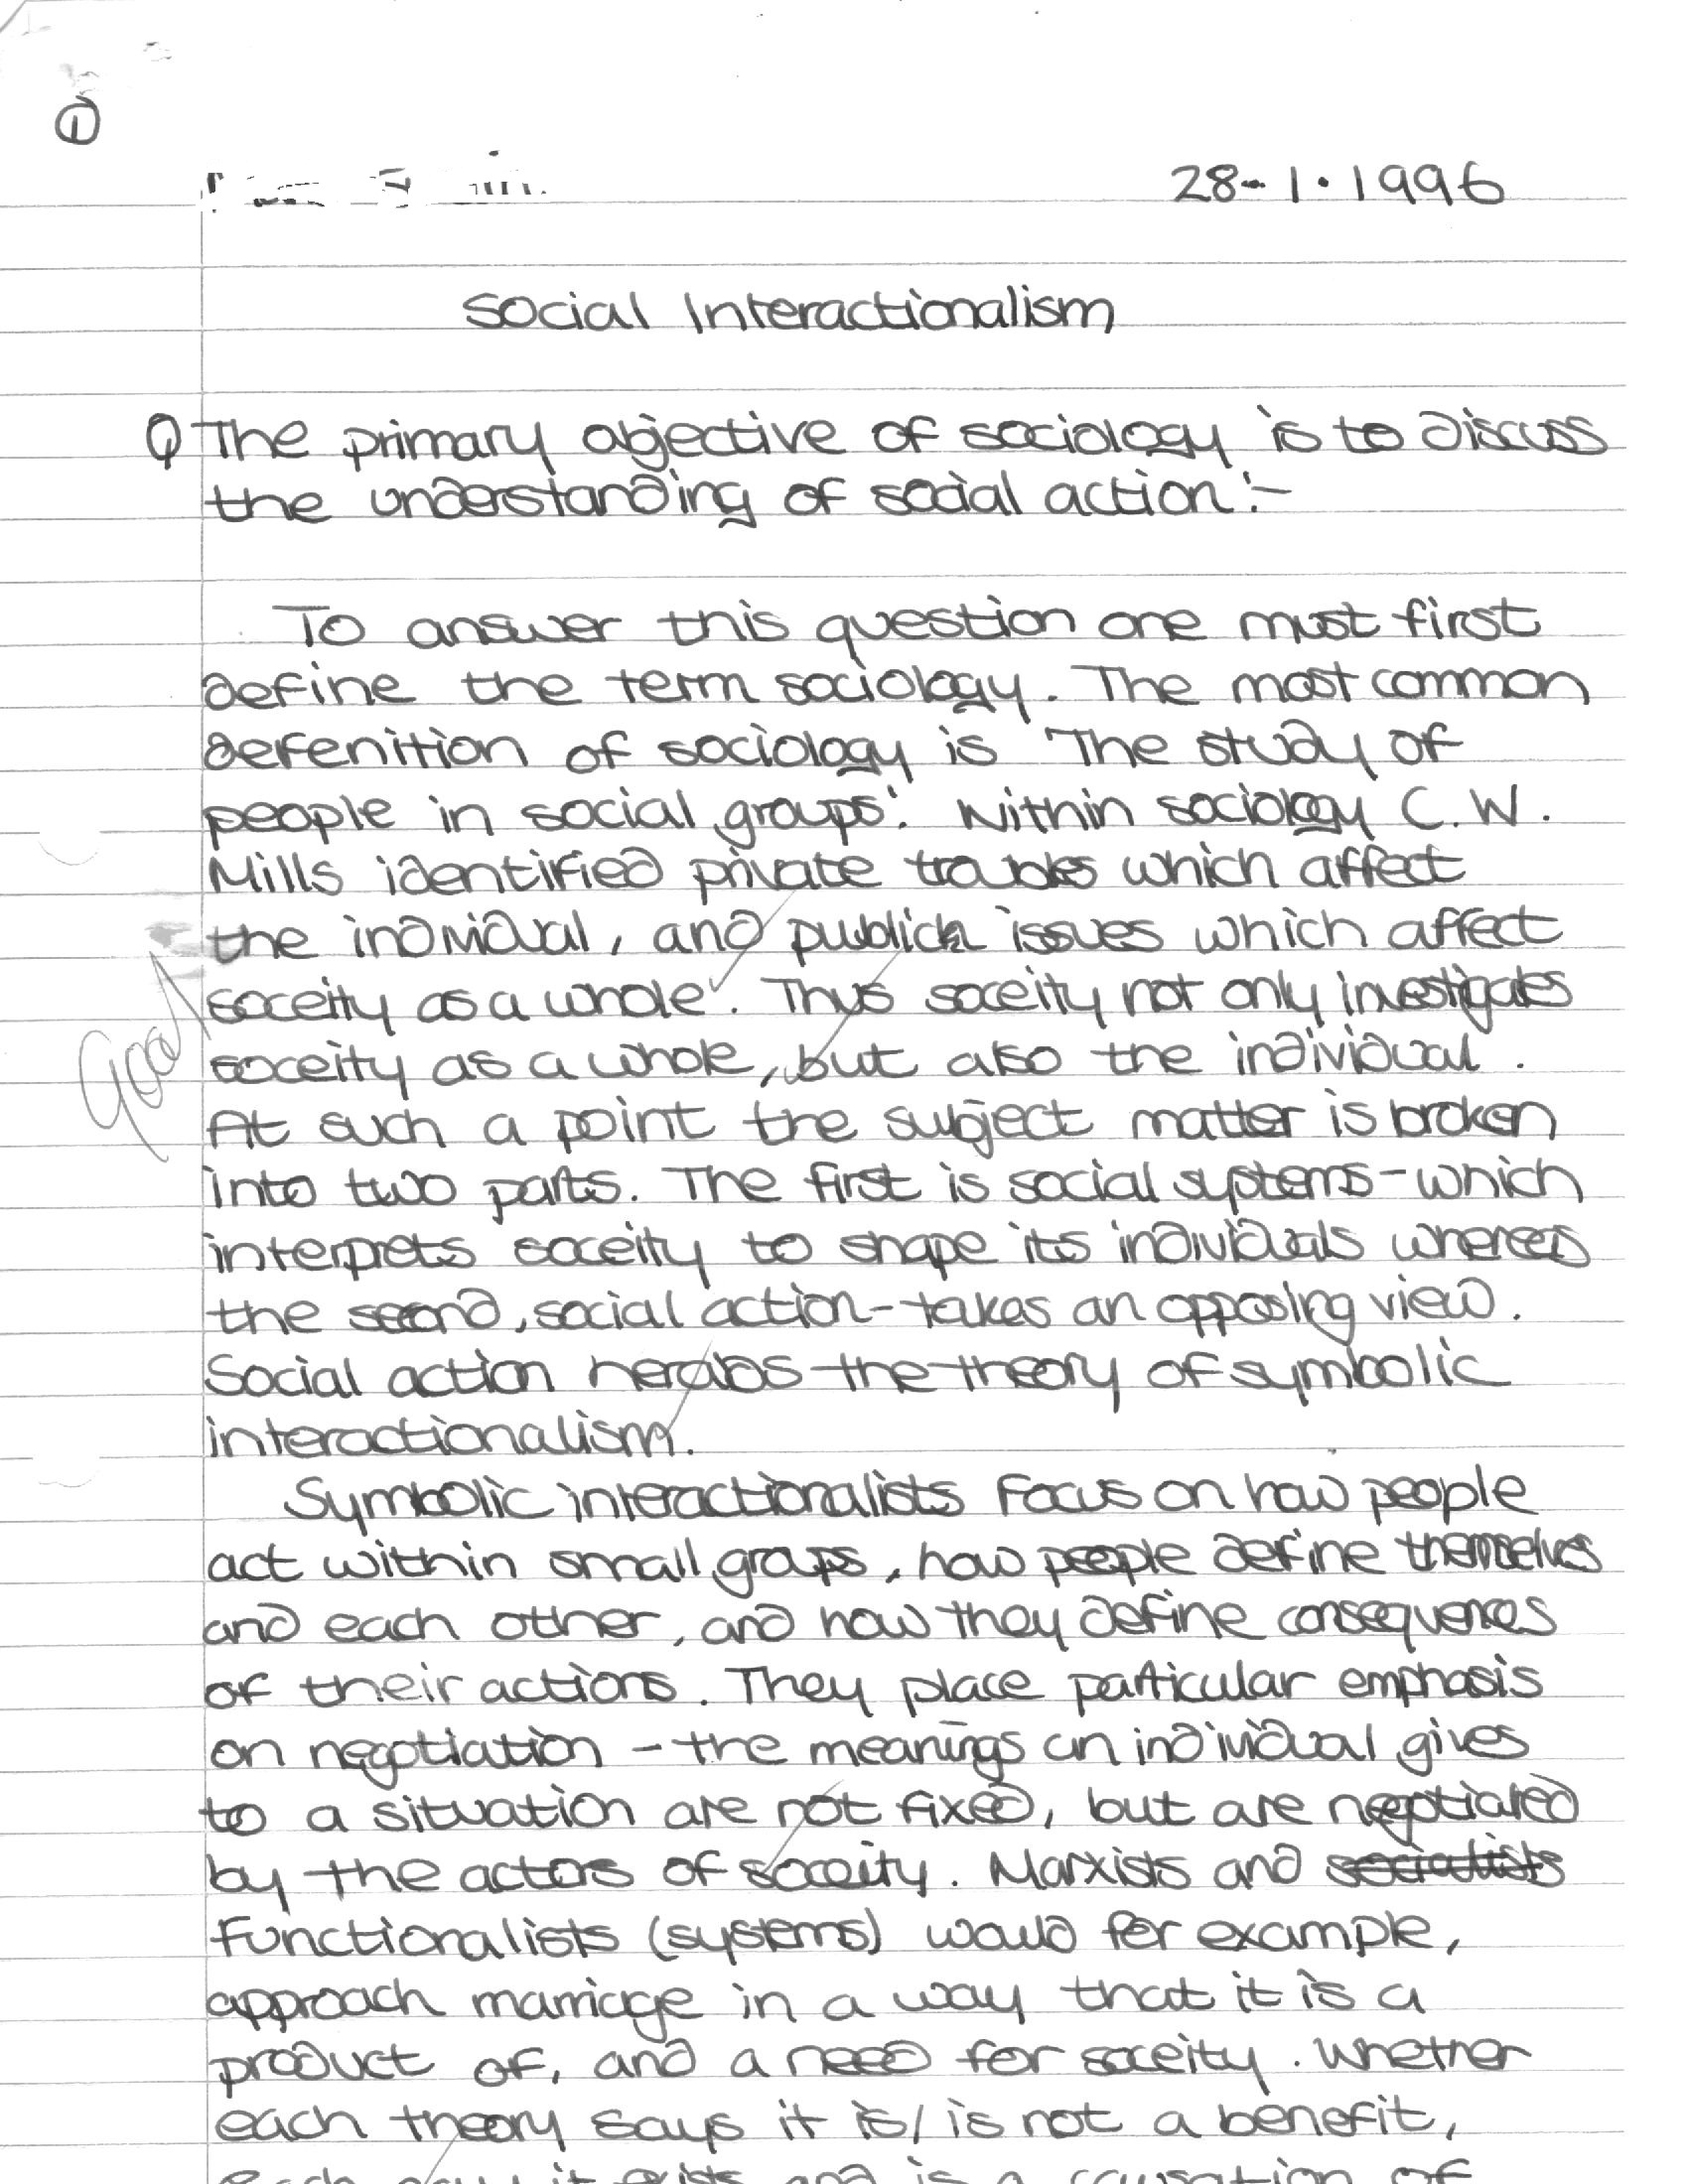 ①
28-1.1996
Social Interactionalism
Q The primary objective of sociology is to discuss
the understanding of social action:-
To answer this question one must first
define the term sociology. The most common
defenition of sociology is 'The study of
people in social groups'. Within sociology C.W.
Mills identified private troubles which affect
the individual, and public issues which affect
soceity as a whole'. Thus soceity not only investigates
good
soceity as a whole, but also the individual.
At such a point the subject matter is broken
into two parts. The first is social systems-which
interprets soceity to shape its individuals whereas
the second, social action-takes an opposing view.
Social action heralds the theory of symbolic
interactionalism.
Symbolic interactionalists focus on how people
act within small groups, how people define themselves
and each other, and how they define consequences
of their actions. They place particular emphasis
on negotiation - the meanings an individual gives
to a situation are not fixed, but are negotiated
by the actors of soceity. Marxists and socialists
functionalists (systems) would for example,
approach marriage in a way that it is a
product of, and a need for soceity. Whether
each theory says it is/is not a benefit,
each say it exists and is a causation of